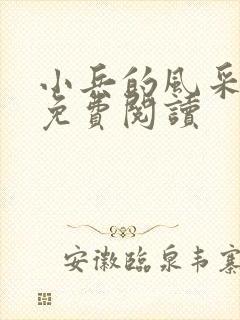 小兵的风采
免費閱讀
安徽臨泉韦寨